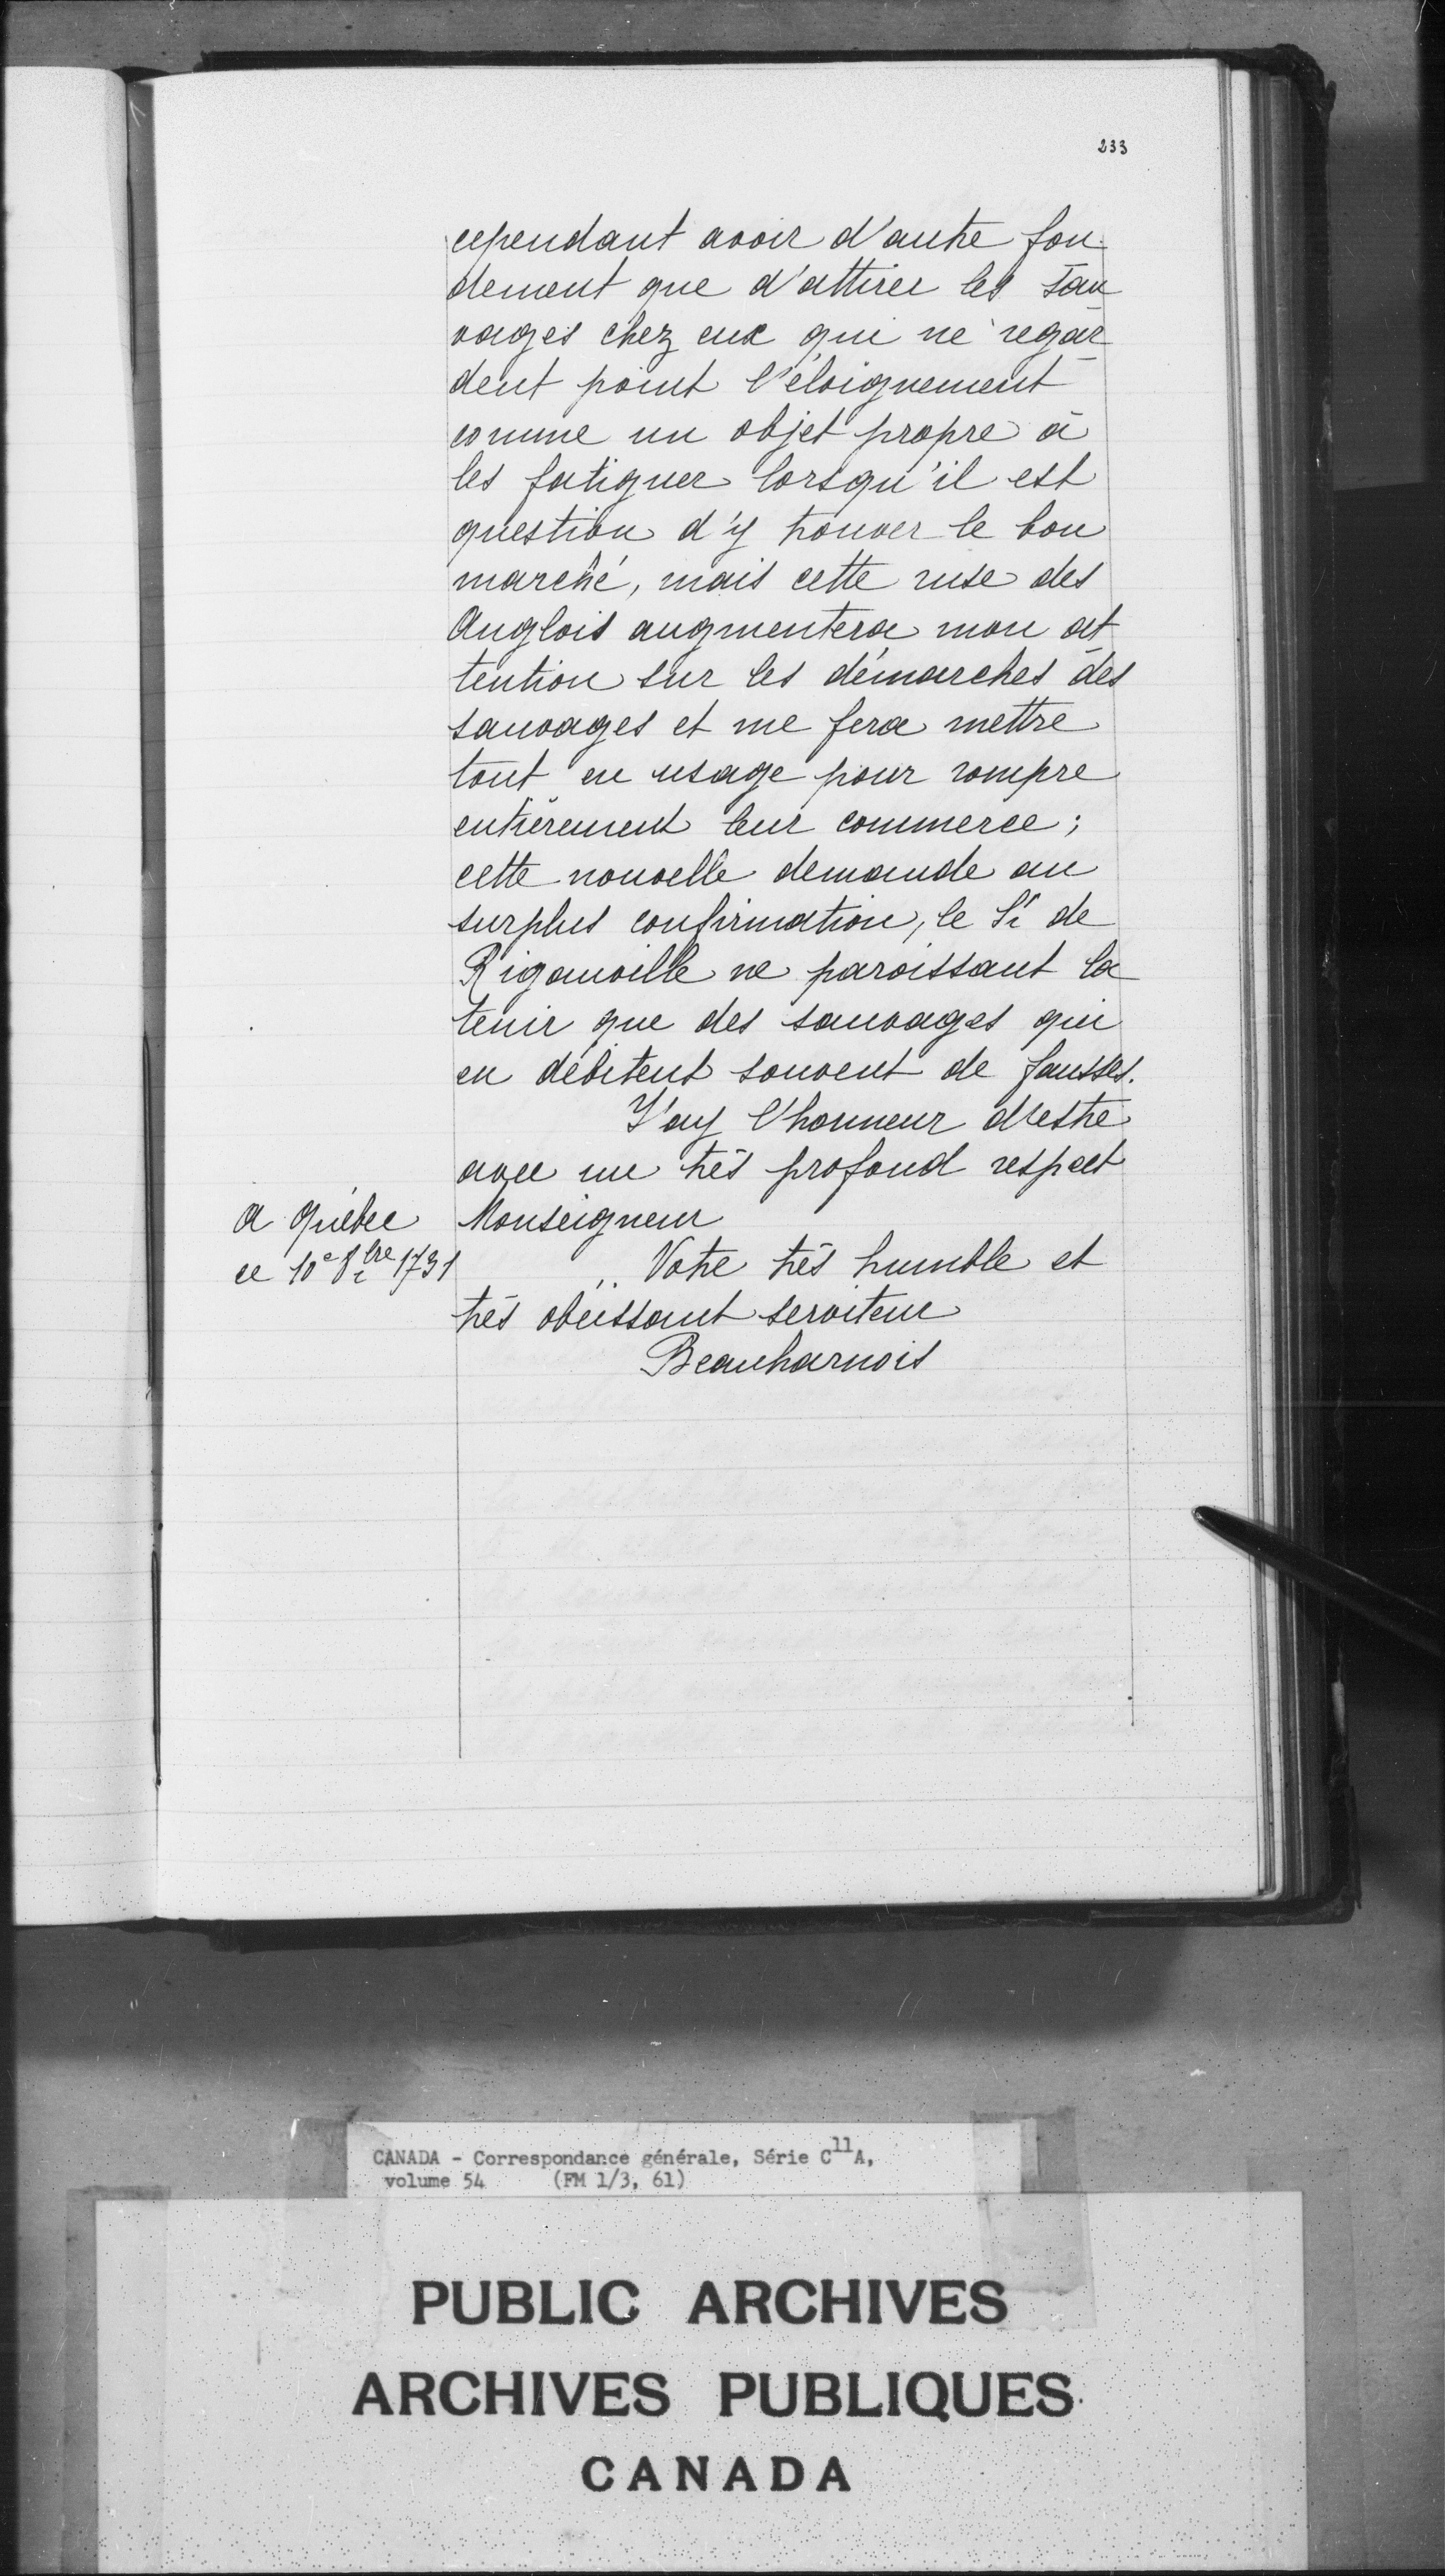 233
cependant avoir d'autre fon-
dement que d'attirer les sau-
vages chez eux qui ne regar-
dent point l'éloignement
comme un objet propre à
les fatiguer lorsqu'il est
question d'y trouver le bon
marché, mais cette ruse des
Anglois augmentera mon at-
tention sur les démarches des
sauvages et me fera mettre
tout en usage pour rompre
entièrement leur commerce;
cette nouvelle demande au
surplus confirmation, le Sr de
Rigauville ne paroissant la
tenir que des sauvages qui
en débitent souvent de fausses.
J'ay l'honneur d'estre
avec un très profond respect
Monseigneur
A Québec
ce 10e 8bre 1731
Votre très humble et
très obéissant serviteur
Beauharnois
CANADA - Correspondance générale, Série C11A,
volume 54 (FM 1/3, 61)
PUBLIC ARCHIVES
ARCHIVES PUBLIQUES
CANADA